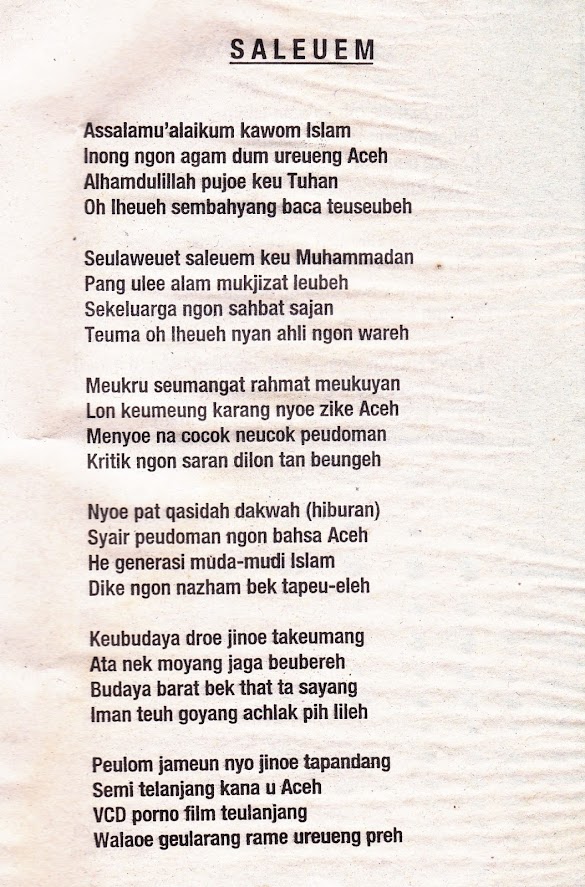 SALEUEM
Assalamu'alaikum kawom Islam
Inong ngon agam dum ureueng Aceh
Alhamdulillah pujoe keu Tuhan
Oh lheueh sembahyang baca teuseubeh
Seulaweuet saleuem keu Muhammadan
Pang ulee alam mukjizat leubeh
Sekeluarga ngon sahbat sajan
Teuma oh lheueh nyan ahli ngon wareh
Meukru seumangat rahmat meukuyan
Lon keumeung karang nyoe zike Aceh
Menyoe na cocok neucok peudoman
Kritik ngon saran dilon tan beungeh
Nyoe pat qasidah dakwah (hiburan)
Syair peudoman ngon bahsa Aceh
He generasi muda-mudi Islam
Dike ngon nazham bek tapeu-eleh
Keubudaya droe jinoe takeumang
Ata nek moyang jaga beubereh
Budaya barat bek that ta sayang
Iman teuh goyang achlak pih lileh
Peulom jameun nyo jinoe tapandang
Semi telanjang kana u Aceh
VCD porno film teulanjang
Walaoe geularang rame ureueng preh